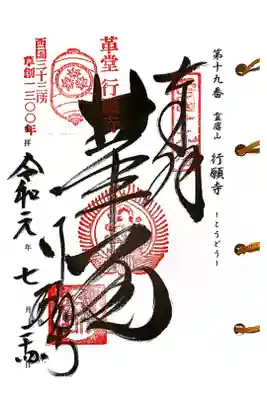 第十九番 霊麀山 行願寺 ーこうどうー
奉拝
革堂
行願寺
革堂 行願寺
西国三十三所
草創一三〇〇年
拝
令和元年七月